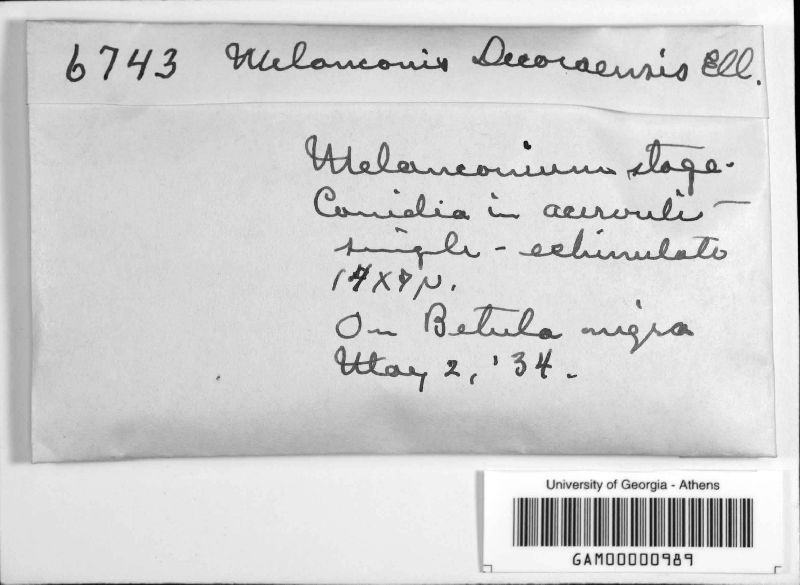 6743 Melanconis Decoraensis Ell.
Melanconium stage-
Conidia in acervuli -
single - echinulate
17X7µ.
On Betula nigra
May 2, '34.
University of Georgia - Athens
GAM00000989